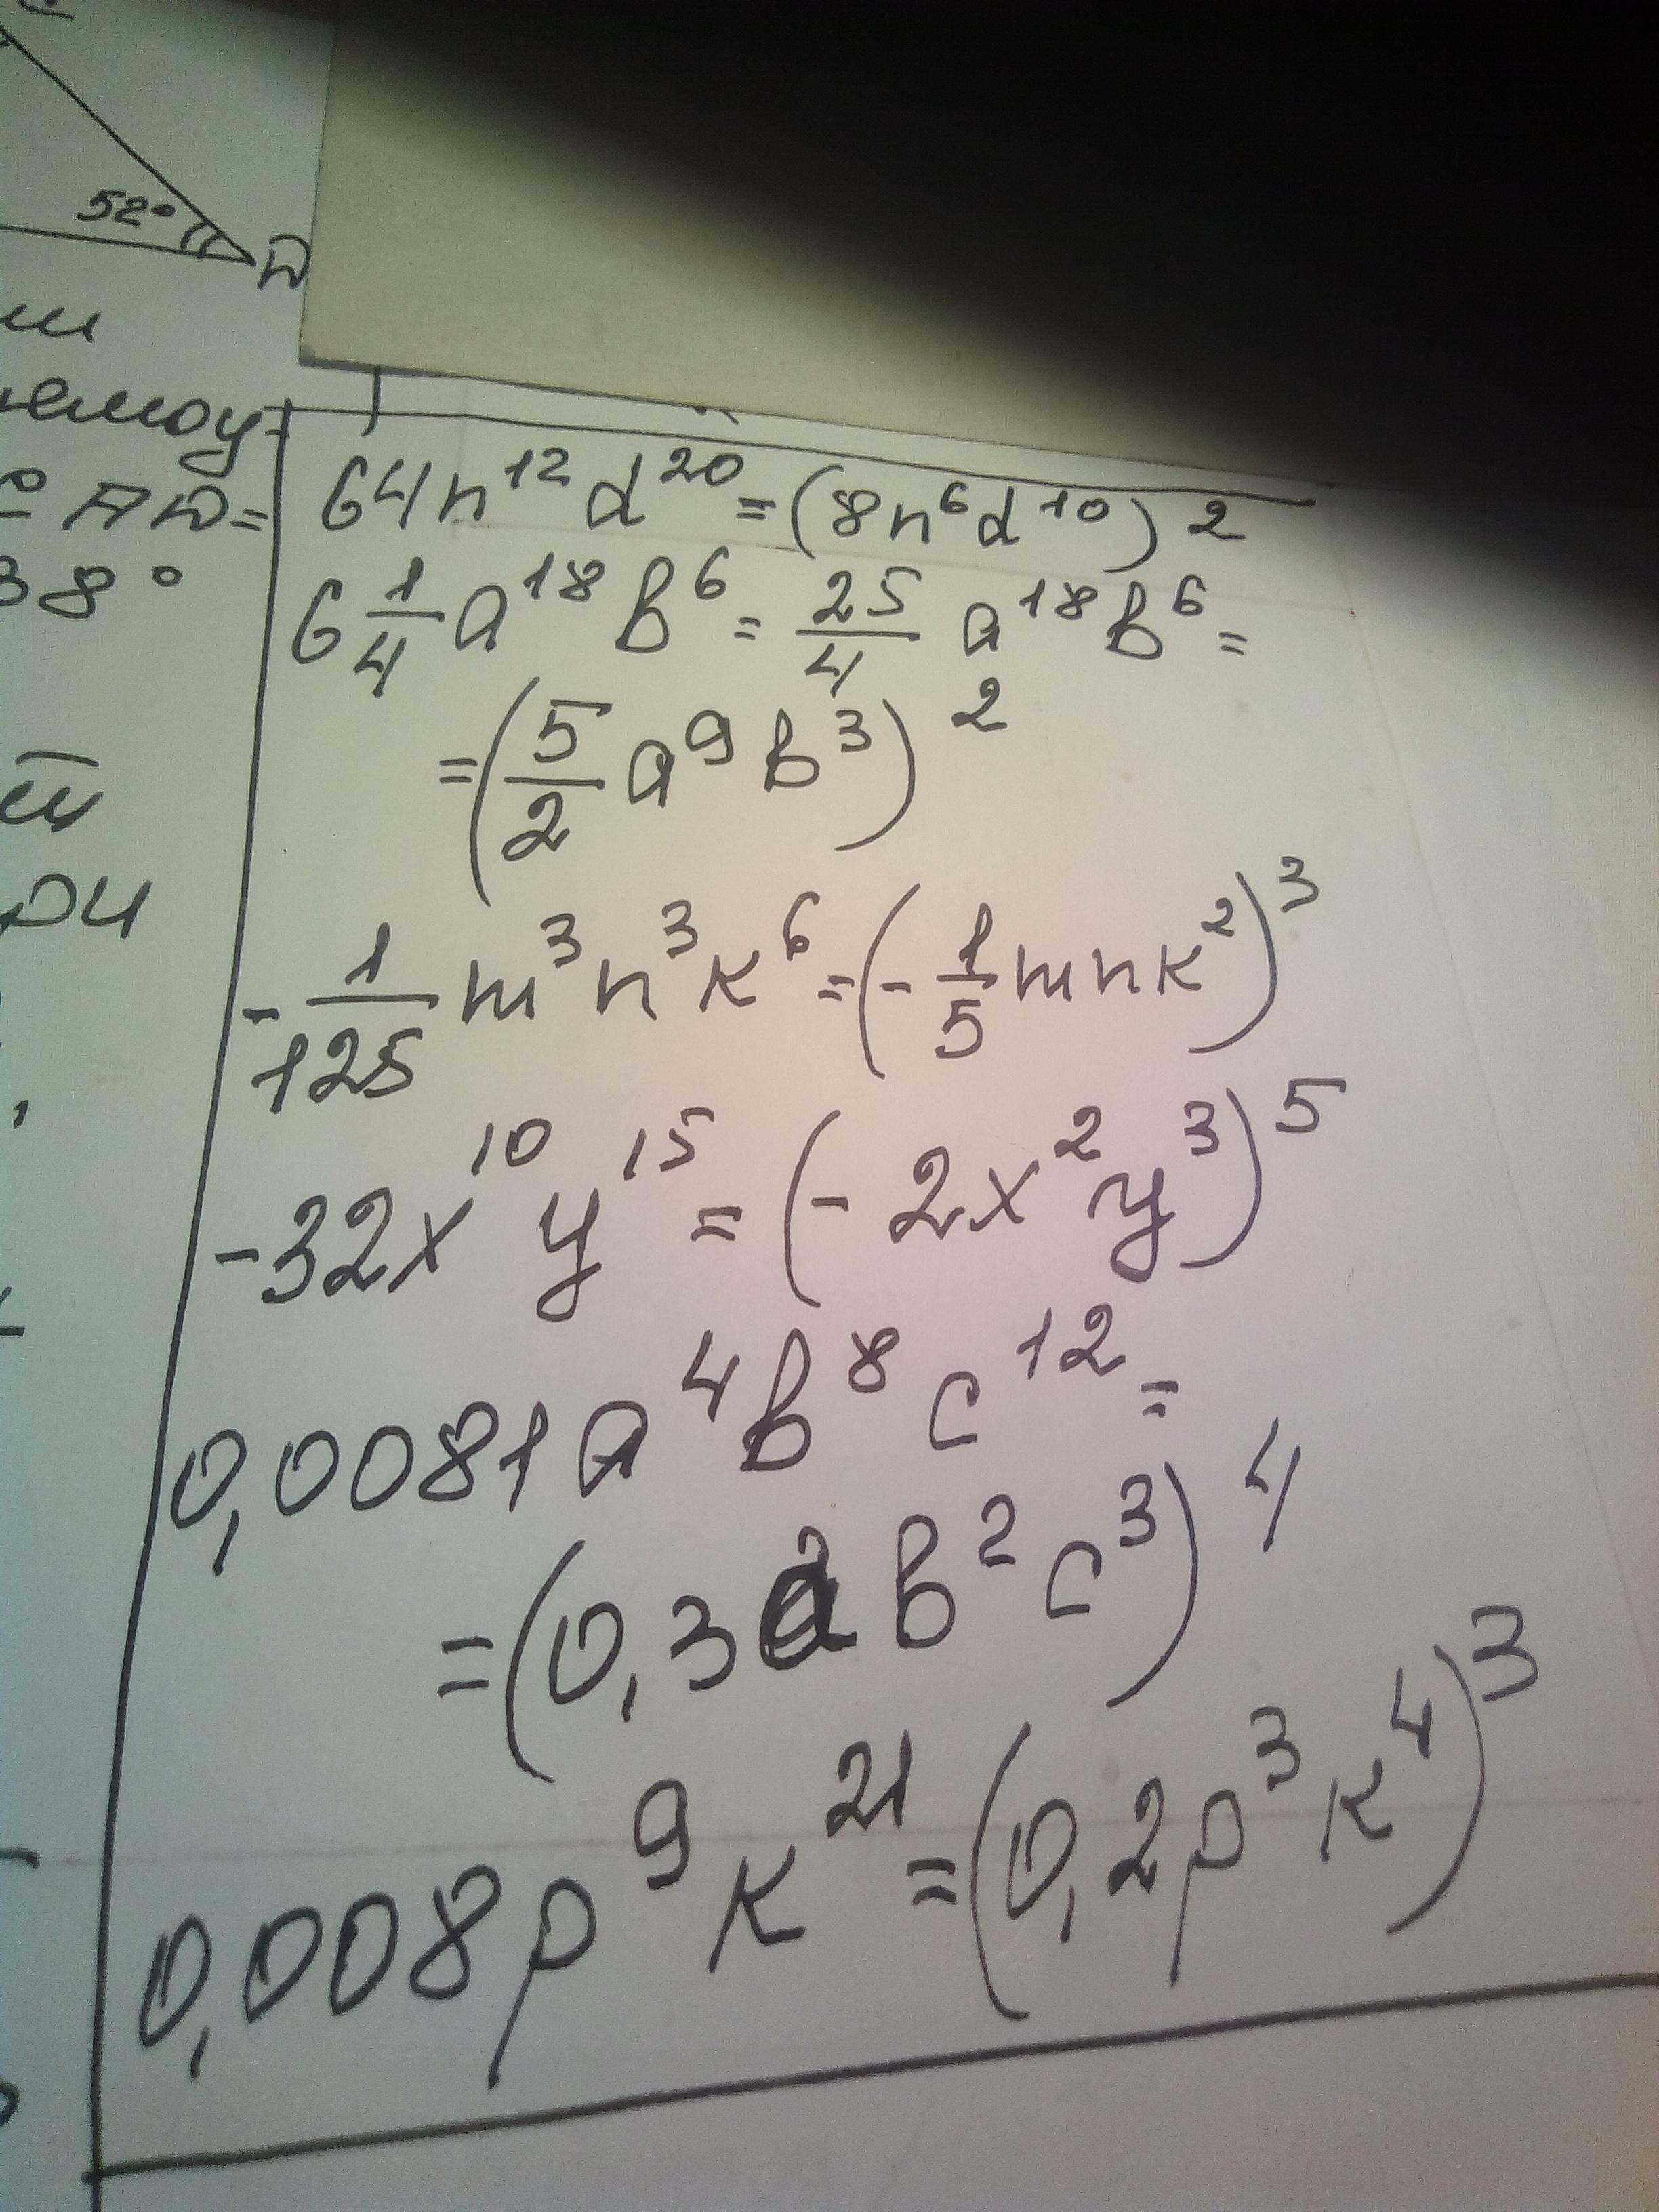 52°
D
AD=
38°
64n¹²d²⁰=(8n⁶d¹⁰)²
6 1/4 a¹⁸b⁶ = 25/4 a¹⁸b⁶ =
=(5/2 a⁹b³)²
-1/125 m³n³к⁶=(-1/5 mnк²)³
-32x¹⁰y¹⁵=(-2x²y³)⁵
0,0081a⁴b⁸c¹²=
=(0,3ab²c³)⁴
0,008p⁹к²¹=(0,2p³к⁴)³